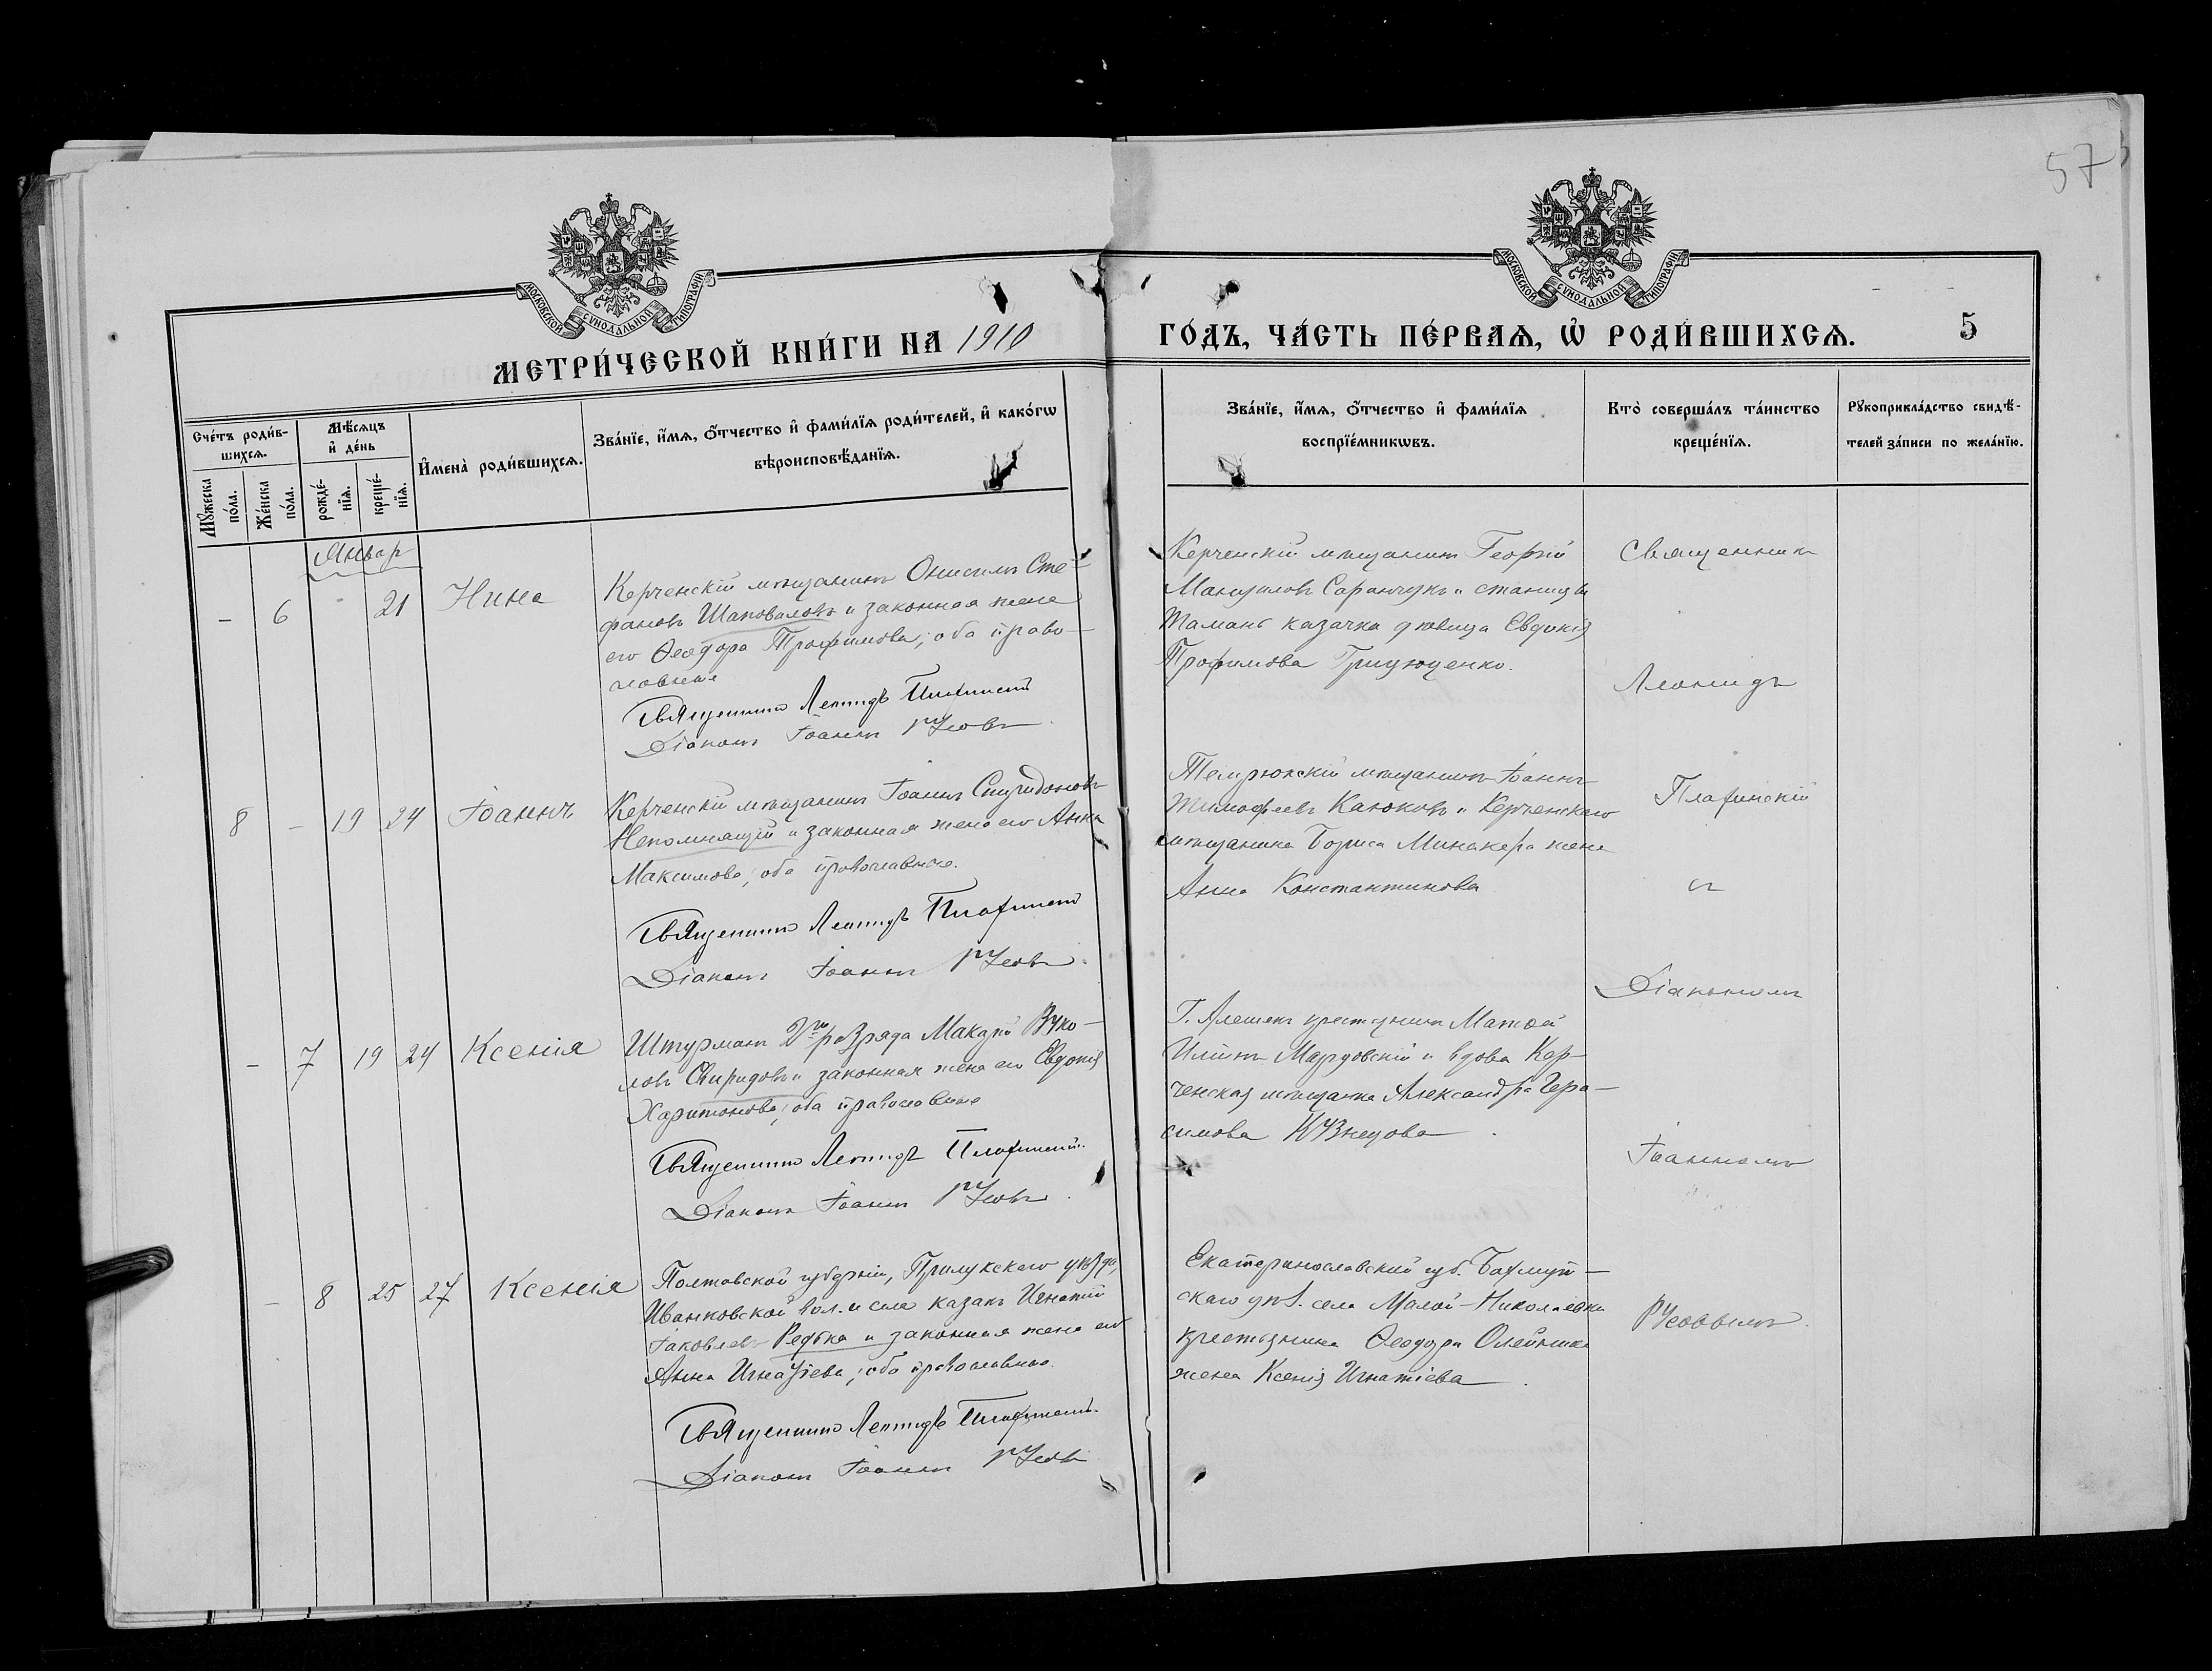 57
МОСКОВСКОЙ СѴНОДАЛЬНОЙ ТИПОГРАФІИ
МОСКОВСКОЙ СѴНОДАЛЬНОЙ ТИПОГРАФІИ
МЕТРИ́ЧЕСКОЙ КНИ́ГИ НА 1910
ГО́ДЪ, ЧА́СТЬ ПЕ́РВАѦ, Ѿ РОДИ́ВШИХСѦ. 5
Сче́тъ роди́в-
шихсѧ.
Мѣ́сѧцъ
и҆ де́нь
И҆мена̀ роди́вшихсѧ.
Зва́нїе, и҆́мѧ, ѻ҆́тчество и҆ фами́лїѧ роди́телей, и҆ како́гѡ
вѣроисповѣ́данїѧ.
Мꙋ́жеска
по́ла.
Же́нска
по́ла.
рожде́-
нїѧ.
креще́-
нїѧ.
Зва́нїе, и҆́мѧ, ѻ҆́тчество и҆ фами́лїѧ
воспрїе́мникѡвъ.
Кто̀ соверша́лъ та́инство
креще́нїѧ.
Рꙋкоприкла́дство свидѣ́-
телей за́писи по жела́нїю.
Январ
- 6 - 21 Нина
Керченскій мѣщанинъ Онисимъ Сте-
фановъ Шаповаловъ и законная жена
его Ѳеодора Трофимова, оба право-
славные
Священникъ Леонидъ Плафинскій
Діаконъ Іоаннъ Русовъ
Керченскій мѣщанинъ Георгій
Мануиловъ Саранчукъ и станицы
Тамань казачка дѣвица Евдокія
Трофимова Грицюценко.
Священникъ
Леонидъ
8 - 19 24 Іоаннъ
Керченскій мѣщанинъ Іоаннъ Спиридоновъ
Непомнящій и законная жена его Анна
Максимова, оба православные.
Священникъ Леонидъ Плафинскій
Діаконъ Іоаннъ Русовъ.
Темрюкскій мѣщанинъ Іоаннъ
Тимофеевъ Каюковъ и Керченскаго
мѣщанина Бориса Минакера жена
Анна Константинова
Плафинскій
съ
Діакономъ
- 7 19 24 Ксенія
Штурманъ 2го разряда Макарій Вуко-
ловъ Свиридовъ и законная жена его Евдокія
Харитонова, оба православные
Священникъ Леонидъ Плафинскій.
Діаконъ Іоаннъ Русовъ.
Г. Алешекъ крестьянинъ Матѳей
Ильинъ и вдова Кер-
ченская мѣщанка Александра Гера-
симова Кузнецова.
Іоанномъ
- 8 25 27 Ксенія
Полтавской губерніи, Прилукскаго уѣзда,
Иванковской вол. и села казакъ Игнатій
Іаковлевъ Редька и законная жена его
Анна Игнатіева, оба православные.
Священникъ Леонидъ Плафинскій.
Діаконъ Іоаннъ Русовъ
Екатеринославский губ. Бахмут-
скаго уѣз. села Малой-Николаевки
крестьянина Ѳеодора Олейника
жена Ксенія Игнатіева.
Русовымъ.